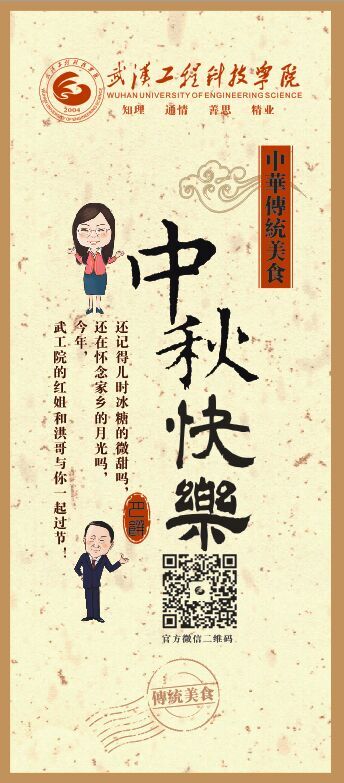 武汉工程科技学院
WUHAN UNIVERSITY OF ENGINEERING SCIENCE
知理 通情 善思 精业
2004
中華傳統美食
中秋快樂
还记得儿时冰糖的微甜吗，
还在怀念家乡的月光吗，
今年，
武工院的红姐和洪哥与你一起过节！
官方微信二维码
傳統美食